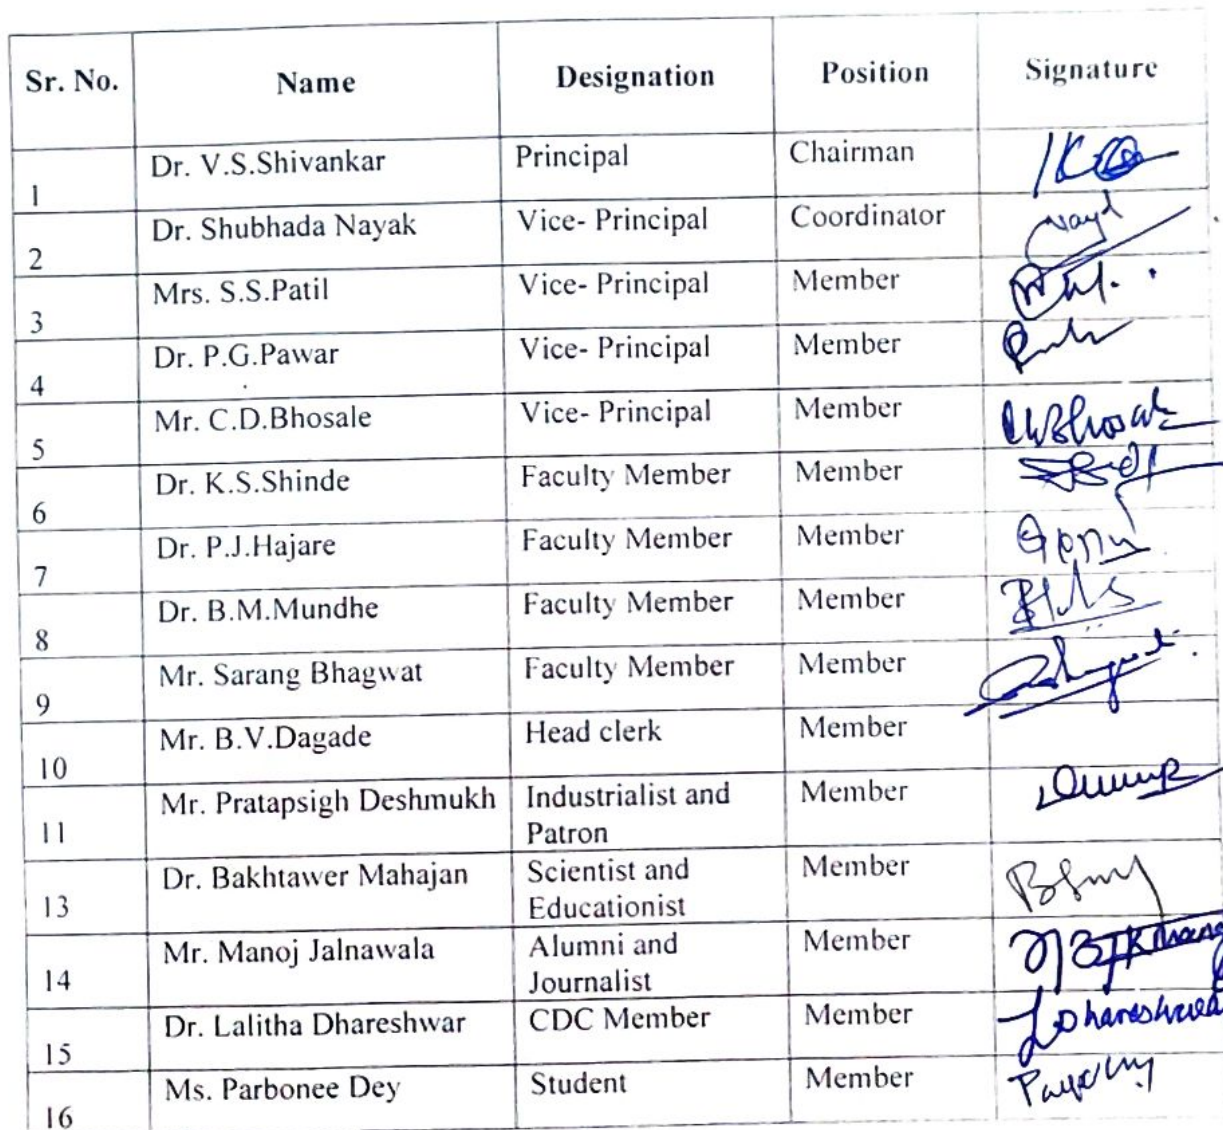 Sr. No. Name Designation Position Signature
1 Dr. V.S.Shivankar Principal Chairman
2 Dr. Shubhada Nayak Vice- Principal Coordinator
3 Mrs. S.S.Patil Vice- Principal Member
4 Dr. P.G.Pawar Vice- Principal Member
5 Mr. C.D.Bhosale Vice- Principal Member
6 Dr. K.S.Shinde Faculty Member Member
7 Dr. P.J.Hajare Faculty Member Member
8 Dr. B.M.Mundhe Faculty Member Member
9 Mr. Sarang Bhagwat Faculty Member Member
10 Mr. B.V.Dagade Head clerk Member
11 Mr. Pratapsigh Deshmukh Industrialist and Member
Patron
13 Dr. Bakhtawer Mahajan Scientist and Member
Educationist
14 Mr. Manoj Jalnawala Alumni and Member
Journalist
15 Dr. Lalitha Dhareshwar CDC Member Member
16 Ms. Parbonee Dey Student Member